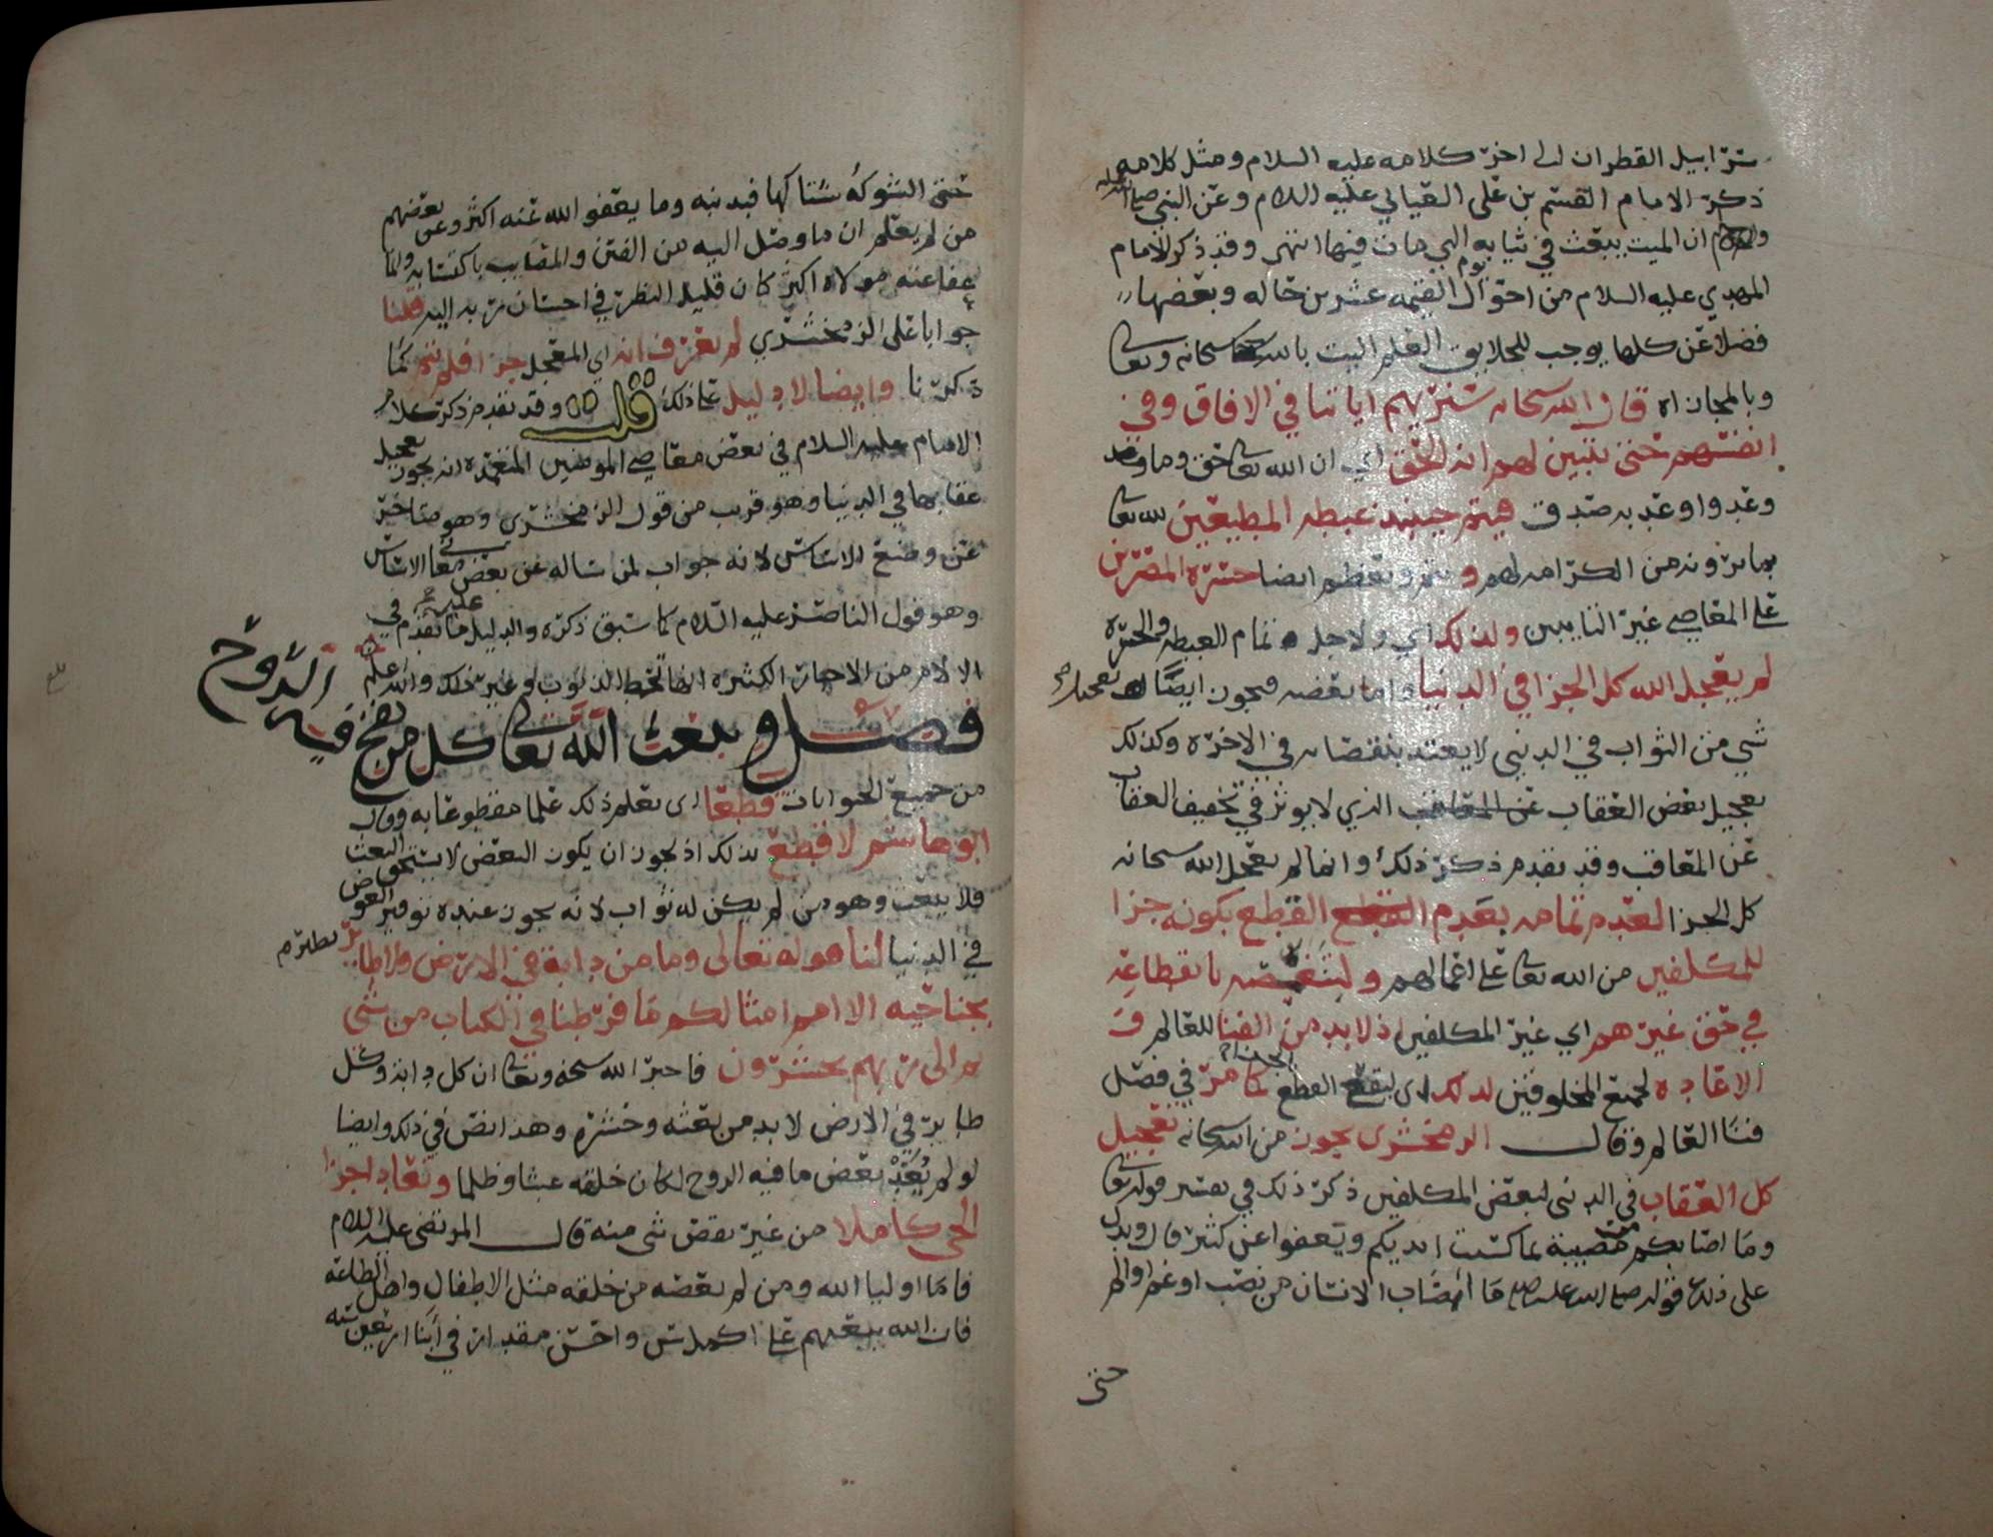 سرابيل القطران الى اخر كلامه عليه السلام ومثل كلامه
ذكر الامام القسم بن على العياني عليه السلام وعن النبي صلى الله عليه
واله ان الميت يبعث في ثيابه التي مات فيها انتهى وقد ذكر الامام
المهدي عليه السلام من احوال يوم القيمه عشرين حاله وبعضها
فضلا عن كلها يوجب للخلايق العلم البت بالله سبحانه وتعالى
وبالمجازاه قال الله سبحانه سنريهم اياتنا في الافاق وفي
انفسهم حتى يتبين لهم انه الحق اي ان الله تعالى حق وما وعد
وعدوا وعد به صدق فيتم حينئذ غبطه المطيعين لله تعالى
بما يرونه من الكرامه لهم وتتم وتعظم ايضا حسره المصرين
على المعاصي غير التايبين ولذلك اي ولاجل تمام الغبطه والحسره
لم يعجل الله كل الجزا في الدنيا واما بعضه فيجوز ايضا تعجيل
شي من الثواب في الدنيى لا يعتد بنقصانه في الاخره وكذلك
تعجيل بعض العقاب الذي لا يوثر في تخفيف العقاب
عن المعاقب وقد تقدم ذكر ذلك وانما لم يعجل الله سبحانه
كل الجزا لعدم تمامه بعدم القطع بكونه جزا
للمكلفين من الله تعالى على اعمالهم ولتنغصه بانقطاعه
في حق غيرهم اي غير المكلفين اذ لا بد من الفنا للعالم و
الاعاده لجميع المخلوقين لذلك اي ليقع القطع كما مر في فصل
فنا العالم وقال الزمخشرى يجوز من الله سبحانه تعجيل
كل العقاب في الدنيى لبعض المكلفين ذكر ذلك في تفسير قوله تعالى
وما اصابكم من مصيبة بما كسبت ايديكم ويعفوا عن كثير قال ويدل
على ذلك قوله صلى الله عليه ما اصاب الانسان من نصب او غم او الم
حتى
حتى الشوكة يشاكها فبذنبه وما يعفو الله عنه اكثر وعن بعضهم
من لم يعلم ان ما وصل اليه من الفتن والمصايب باكتسابه وانما
عفا عنه مولاه اكثر كان قليل النظر في احسان ربه اليه قلنا
جوابا على الزمخشري لم يعرف انه اي المعجل جزا فلم يتم كما
ذكرنا وايضا لا دليل على ذلك قلت وقد تقدم ذكر كلام
الامام عليه السلام في بعض معاصي المومنين المتعمده انه يجوز تعجيل
عقابها في الدنيا وهو قريب من قول الزمخشرى وهو متاخر
عن وضع الاساس لانه جواب لمن ساله عن بعض معاني الاساس
وهو قول الناصر عليه السلام كما سبق ذكره والدليل عليه ما تقدم في
الالام من الاخبار الكثيره انها تحط الذنوب وغير ذلك والله اعلم
فصل ويبعث الله تعالى كل من نفخ فيه الروح
من جميع الحيوانات قطعا اى نعلم ذلك علما مقطوعا به وقال
ابو هاشم لا قطع بذلك اذ يجوز ان يكون البعض لا يستحق البعث
فلا يبعث وهو من لم يكن له ثواب لانه يجوز عنده توفير العوض
في الدنيا لنا قوله تعالى وما من دابة في الارض ولا طاير يطير
بجناحيه الا امم امثالكم ما فرطنا في الكتاب من شي
ثم الى ربهم يحشرون فاخبر الله سبحنه وتعالى ان كل دابة وكل
طاير في الارض لا بد من بعثه وحشره وهذا نص في ذلك وايضا
لو لم يعد بعض ما فيه الروح لكان خلقه عبثا وظلما وتعاد اجزا
الحي كاملا من غير نقص شى منه قال المرتضى عليه السلام
فاما اوليا الله ومن لم يعصه من خلقه مثل الاطفال واهل الطاعه
فان الله يبعثهم على اكمل واحسن مقدار في ابنا اربعين سنه